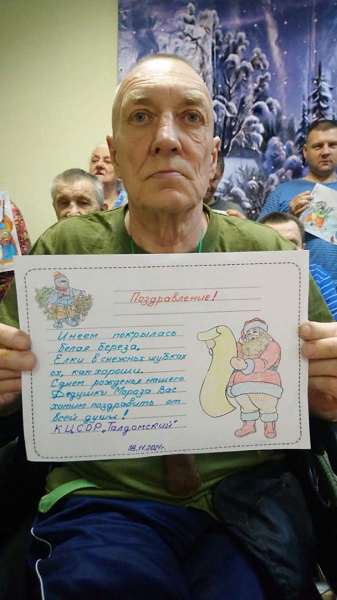 Поздравление!
Инеем покрылась
белая береза,
Елки в снежных шубках
ох, как хороши.
С днем рожденья нашего
Дедушки Мороза Вас
хотим поздравить от
всей души!
КЦСОР „Талдомский"
18.11.2021г.